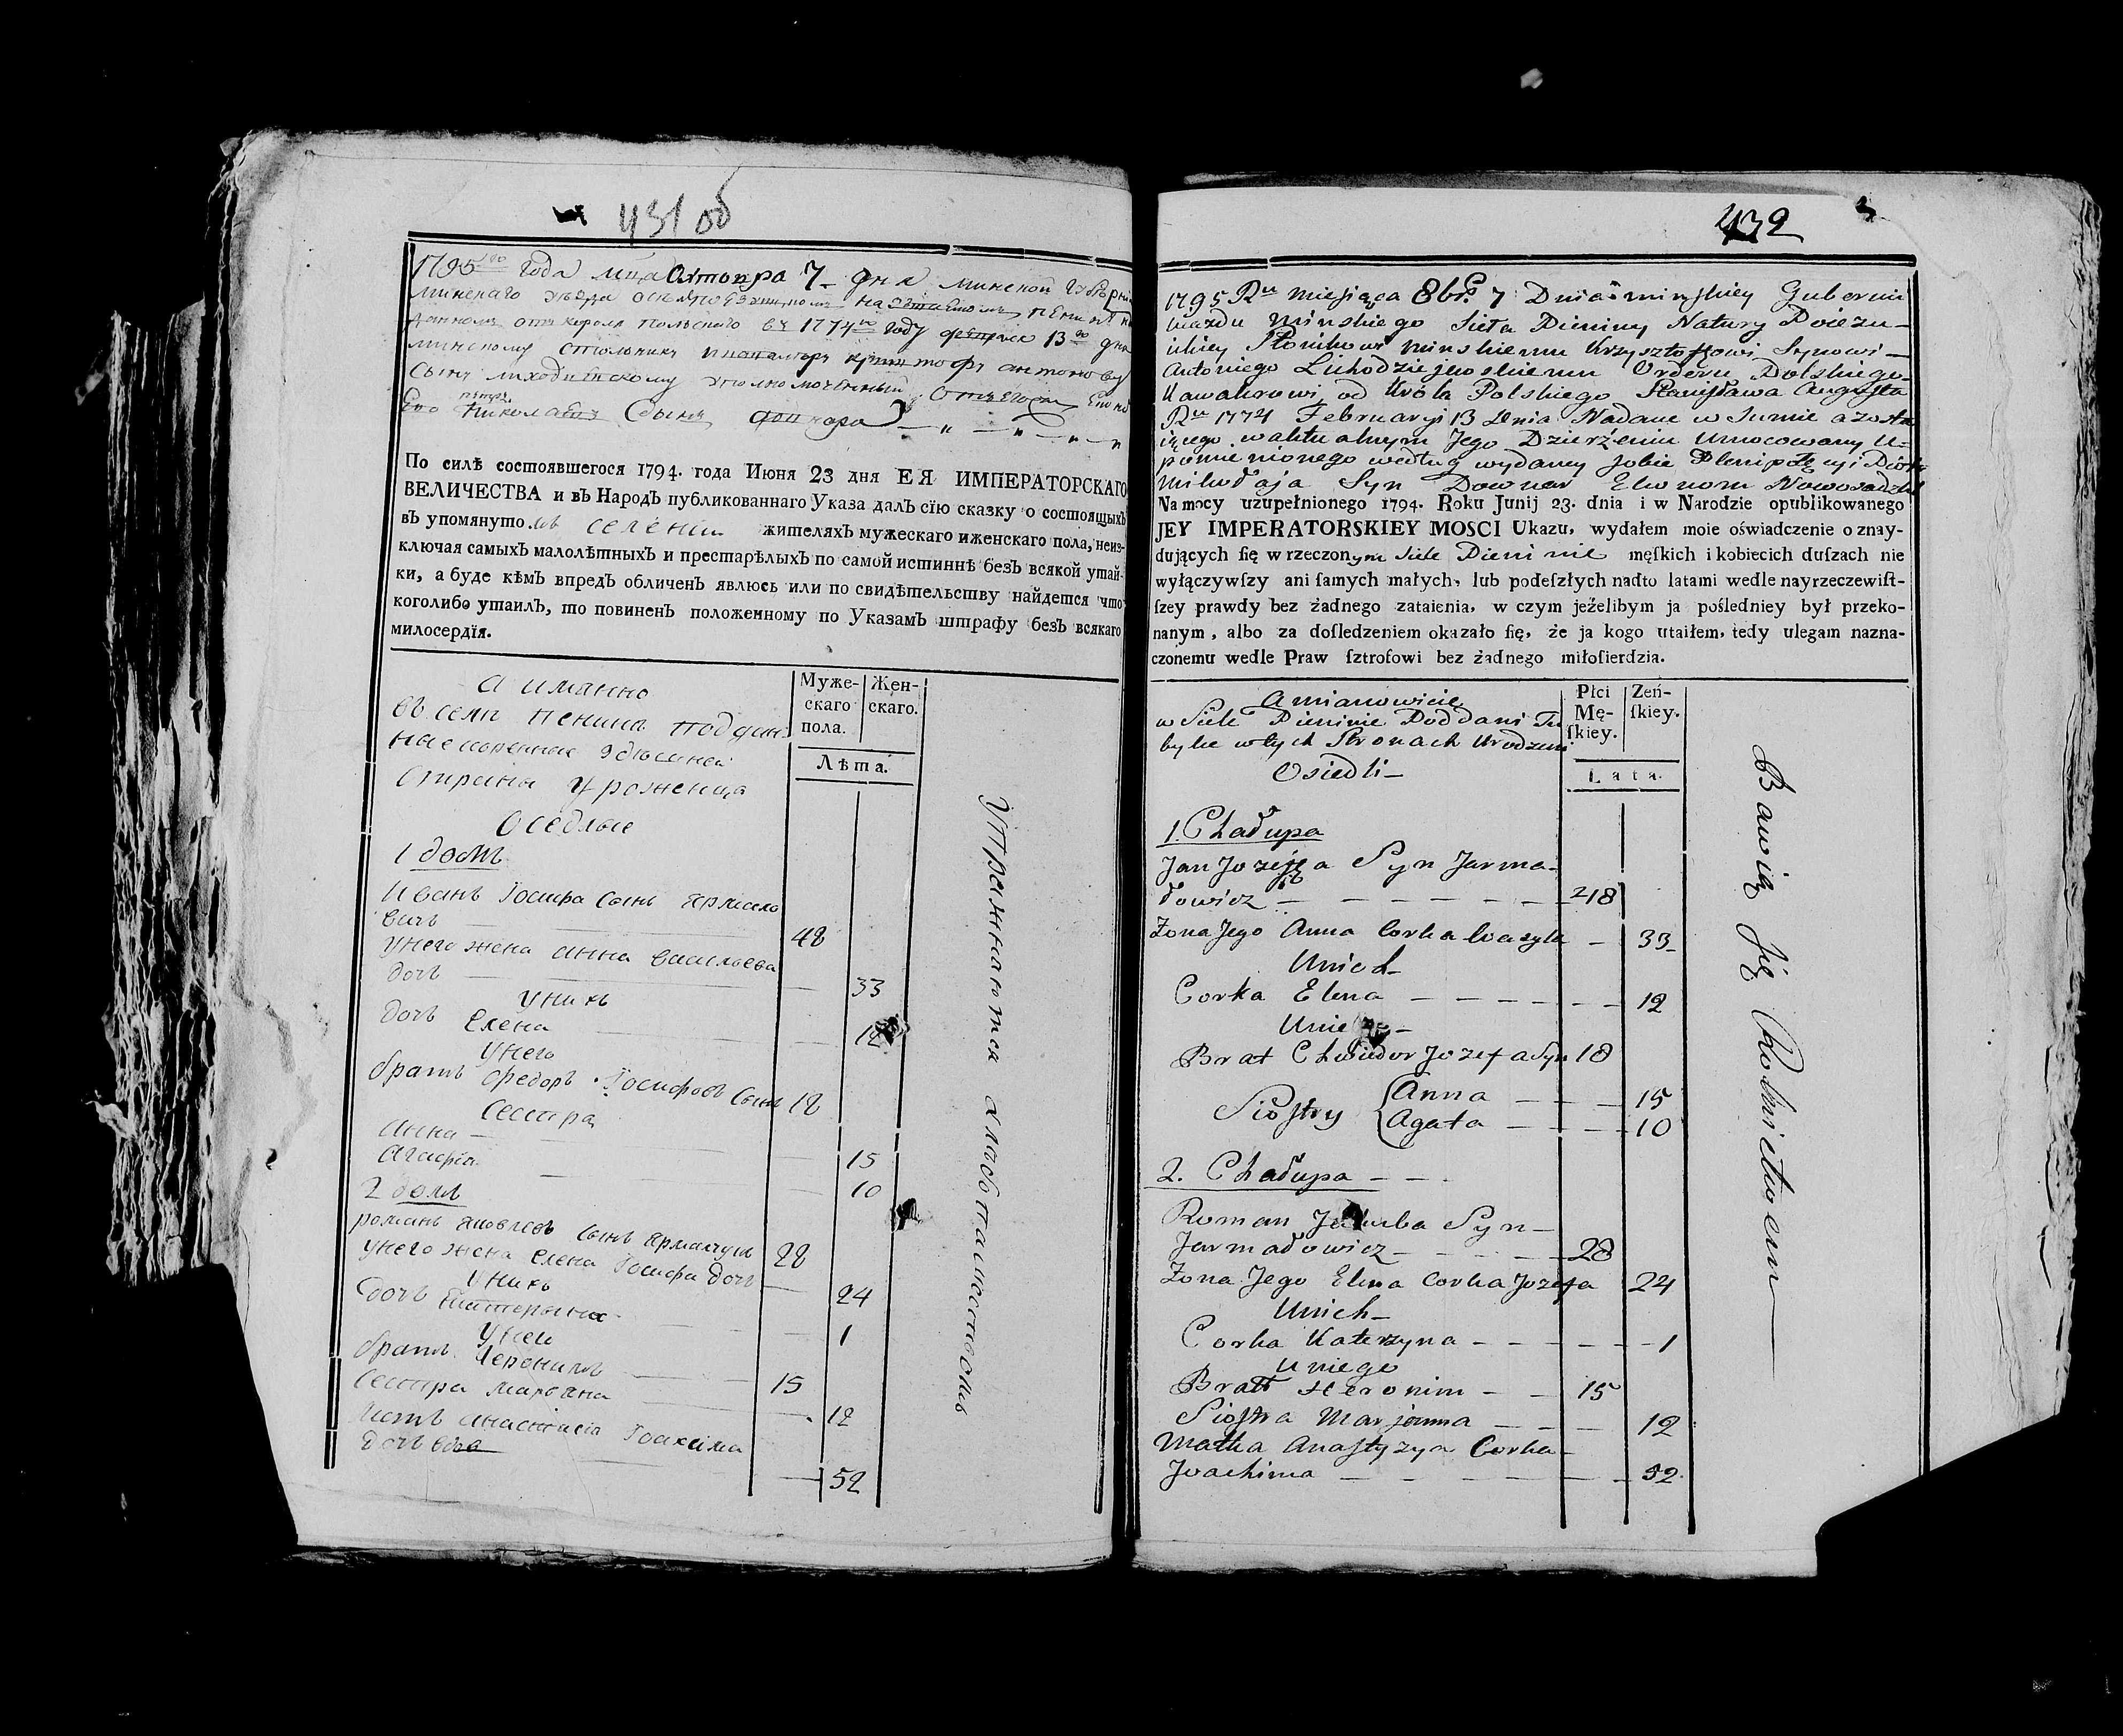 431 об
1795го года мца Октопра 7 дня минской губерни
минскаго уезда
данном отъ короля польскаго въ 1774го году 13го дня
минскому столнику антонову
сыну
Его петру николаева сыну
По силѣ состоявшегося 1794. года Июня 23 дня ЕЯ ИМПЕРАТОРСКАГО
ВЕЛИЧЕСТВА и въ Народѣ публикованнаго Указа далъ сїю сказку о состоящыхъ
въ упомянутомъ селении жителяхъ мужескаго иженскаго пола, неиз-
ключая самыхъ малолѣтныхъ и престарѣлыхъ по самой истиннѣ безъ всякой утай-
ки, а буде кѣмъ впредъ обличенъ явлюсь или по свидѣтельству найдется что
коголибо утаилъ, то повиненъ положенному по Указамъ штрафу безъ всякаго
милосердїя.
Муже- Жен-
скаго скаго.
пола.
Лѣта.
а имянно
въ селѣ пенинѣ поддан-
ные коренные здѣшней
стараны уроженца
Оседлые
1 домъ
Иванъ Іосифа сынъ Ярмало
вичъ 48
Унего жена анна васильева
дочь 33
Унихъ
дочь Елена 12
Унего
братъ Федоръ Іосифовъ сынъ 18
Сестра
анна 15
агафия 10
2 домъ
романъ яковлевъ сынъ 28
Унего жена Елена Іосифа дочь 24
Унихъ
дочь катерына 1
Унего
братъ Иеронимъ 15
Сестра марьяна 12
Мать анастасия Іоахима
дочь вдова 52
Упражняются хлебопашествомъ
432
1795 Ru miesiąca 8br. 7 Dnia minskiey Gubernii
uiazdu Minskiego Sieła Pieniny Natury Poiezu-
ickiey Stolnikowi minskiemu Krzysztoffowi Synowi
Antoniego Lichodziejewskiemu Orderu Polskiego
Kawalerowi od Króla Polskiego Stanisława Augusta
Ru 1774 Februaryi 13 Dnia Nadane w Summie a zosta
iącego w aktualnym Jego Dzierżeniu Umocowany u-
pomienionego według wydaney sobie Plenipotęcyi Piotr
Mikołaja Syn Downar Ekonom
Na mocy uzupełnionego 1794. Roku Junij 23. dnia i w Narodzie opublikowanego
JEY IMPERATORSKIEY MOSCI Ukazu, wydałem moie oświadczenie o znay-
dujących ſię w rzeczonym Siele Pieninie męſkich i kobiecich duſzach nie
wyłączywſzy ani ſamych małych, lub podeſzłych nadto latami wedle nayrzeczewiſt-
ſzey prawdy bez żadnego zataienia, w czym jeżelibym ja poſledniey był przeko-
nanym, albo za doſledzeniem okazało ſię, że ja kogo utaiłem, tedy ulegam nazna-
czonemu wedle Praw ſztrofowi bez żadnego miłoſierdzia.
Płci Zeń-
Mę- ſkiey.
ſkiey.
Lata.
Amianowicie
w Siele Pieninie Poddani Tu
bylce w tych Stronach Urodzeni
Osiedli
1. Chałupa
Jan Jozefa Syn Jarma-
łowicz 48
Zona Jego Anna Corka Wasyla 33
Unich
Corka Elena 12
Uniego
Brat Chwiedor Jozefa Syn 18
Siostry Anna 15
Agata 10
2. Chałupa
Roman Jakuba Syn
Jarmałowicz 28
Zona Jego Elena Corka Jozefa 24
Unich
Corka Katerzyna 1
Uniego
Bratt Heronim 15
Siostra Marjanna 12
Matka Anastyzya Corka
Joachima 52
Bawią się Rolnictwem